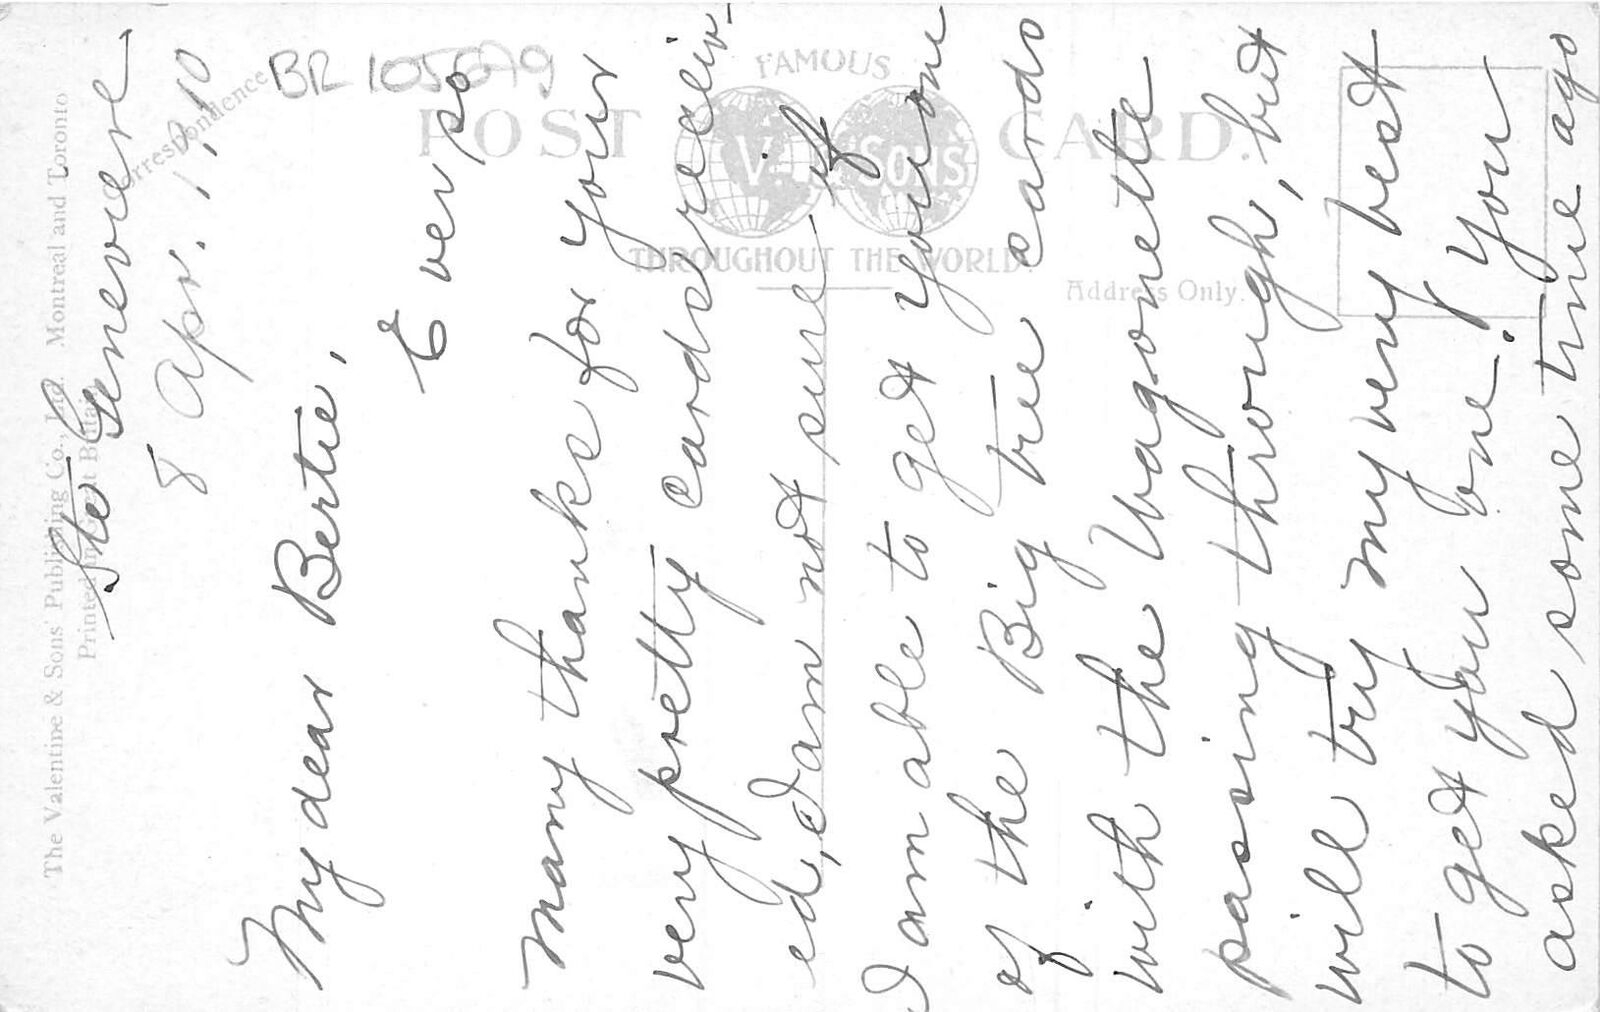 BR 105099
FAMOUS
POST CARD.
V. & SONS
THROUGHOUT THE WORLD.
Address Only.
Correspondence
The Valentine & Sons' Publishing Co., Ltd. Montreal and Toronto
Printed in Great Britain
Ste Genevieve
8 Apr. 1910
My dear Bertie,
Ever so
many thanks for your
very pretty cards receiv-
ed, I am not sure if
I am able to get you one
of the Big tree cards
with the Wagonette
passing through, but
will try my very best
to get you one. You
asked some time ago